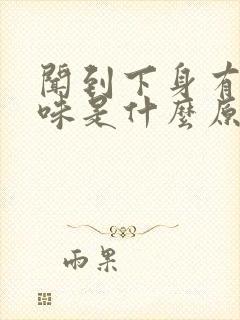 聞到下身有
味是什麼原
雨果